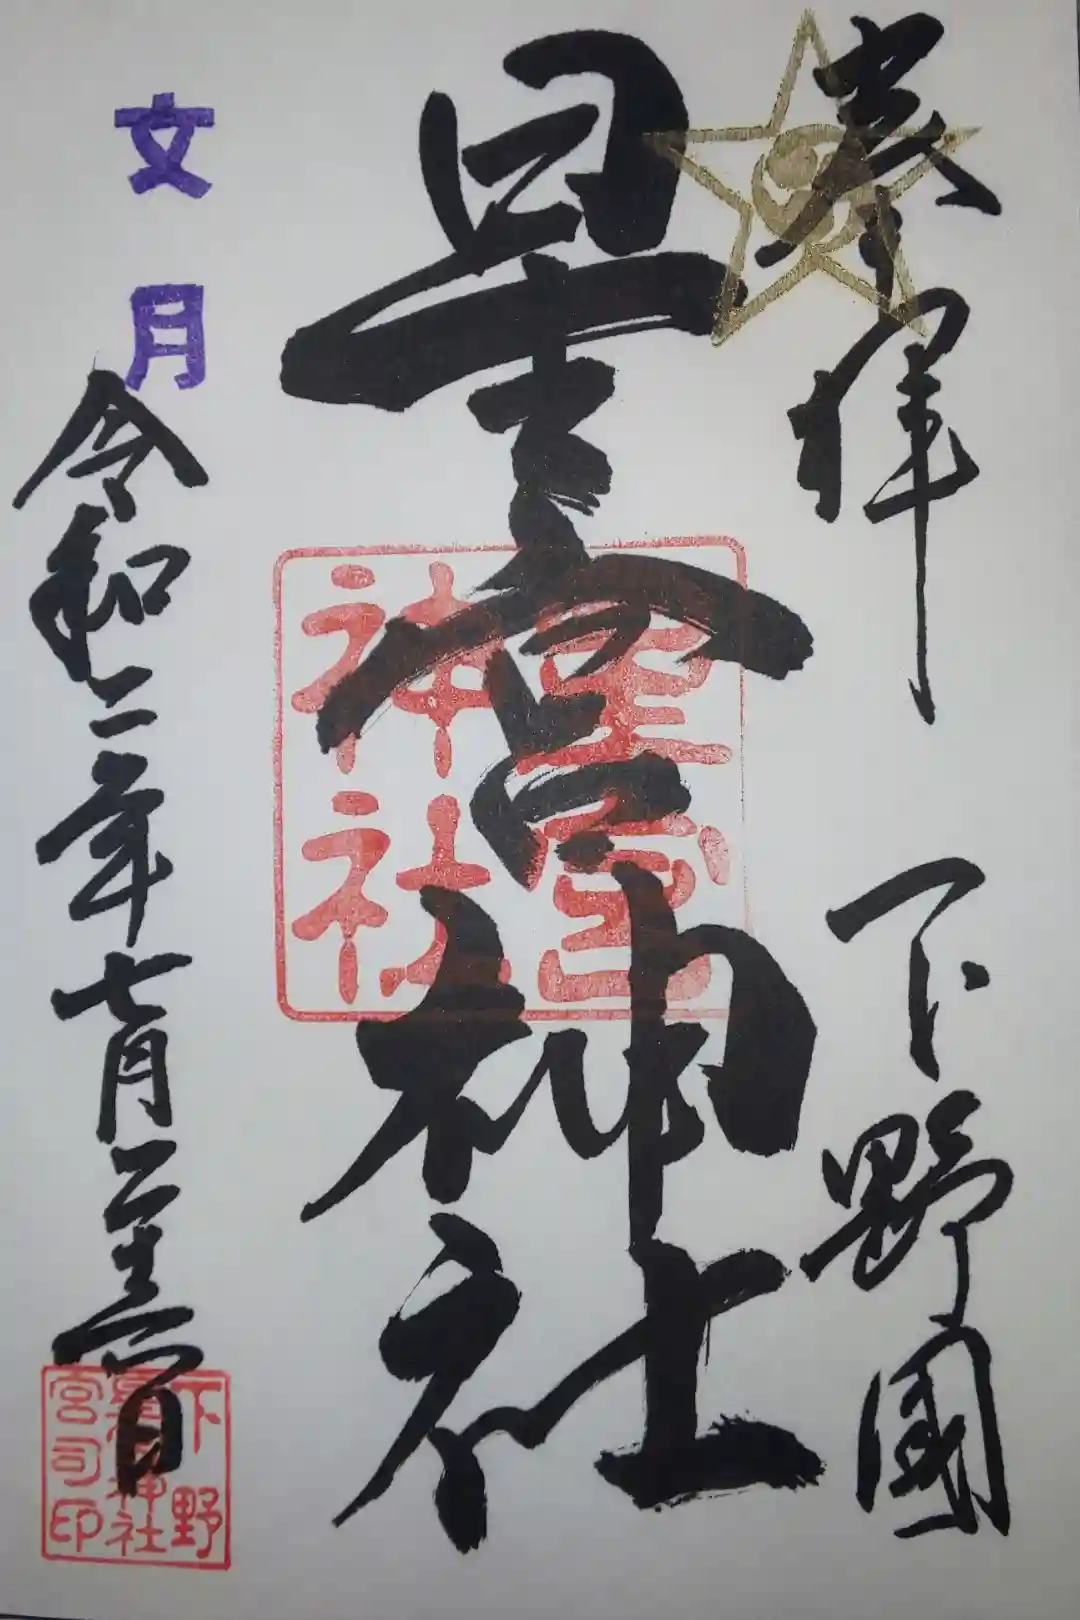 奉拝 下野國
星宮神社
星宮
神社
文月
令和二年七月
下野
星宮神社
宮司印